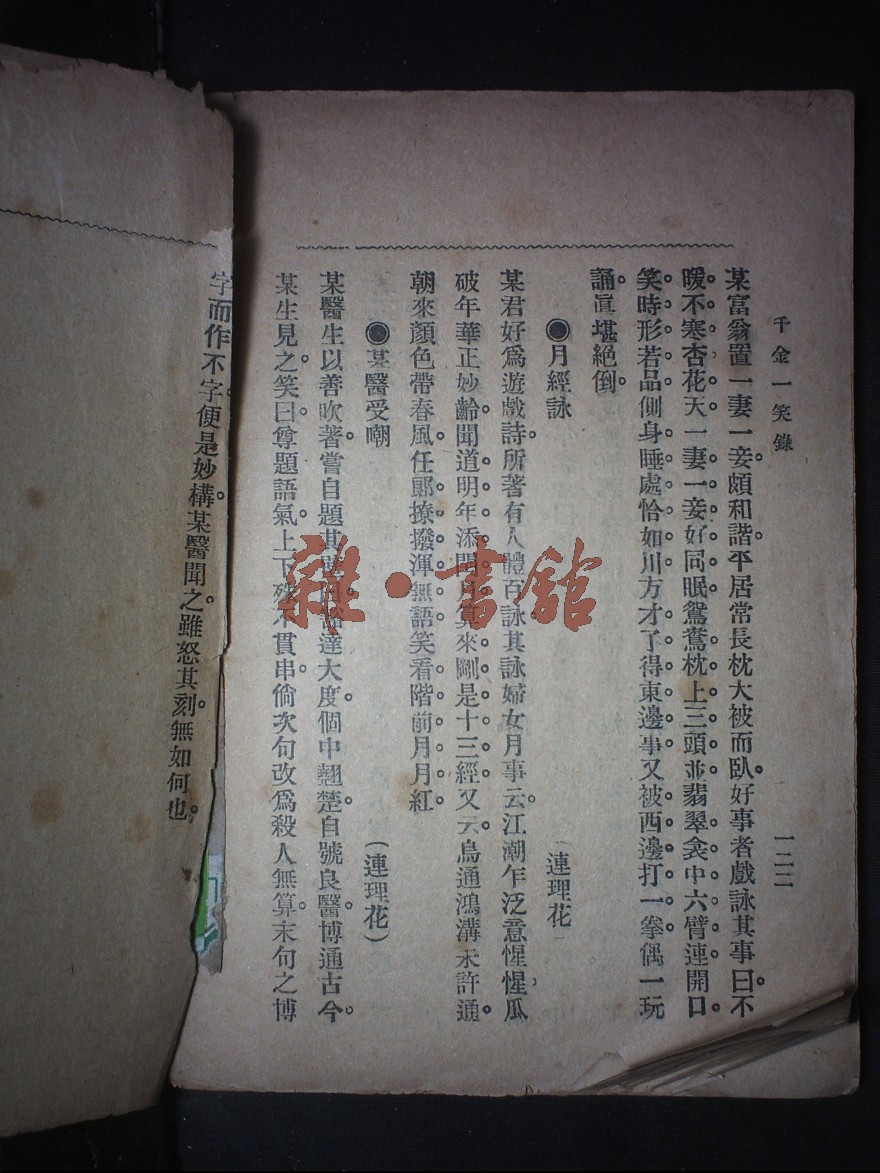 千金一笑錄
一二二
某富翁置一妻一妾。頗和諧。平居常長枕大被而臥。好事者戲詠其事曰。不
暖不寒杏花天。一妻一妾好同眠。鴛鴦枕上三頭並。翡翠衾中六臂連。開口
笑時形若品。側身睡處恰如川。方才了得東邊事。又被西邊打一拳。偶一玩
誦。眞堪絕倒。
●月經詠
(連理花)
某君好爲遊戲詩。所著有人體百詠。其詠婦女月事云。江潮乍泛意惺惺。瓜
破年華正妙齡。聞道明年添閏月。算來剛是十三經。又云。鳥通鴻溝未許通。
朝來顏色帶春風。任郞撩撥渾無語。笑看階前月月紅
●某醫受嘲
(連理花)
某醫生以善吹著。嘗自題其 達大度。個中翹楚。自號良醫。博通古今。
某生見之。笑曰。尊題語氣。上下殊不貫串。倘次句改爲殺人無算。末句之博
字而作不字。便是妙構。某醫聞之。雖怒其刻。無如何也。
雜·書舘